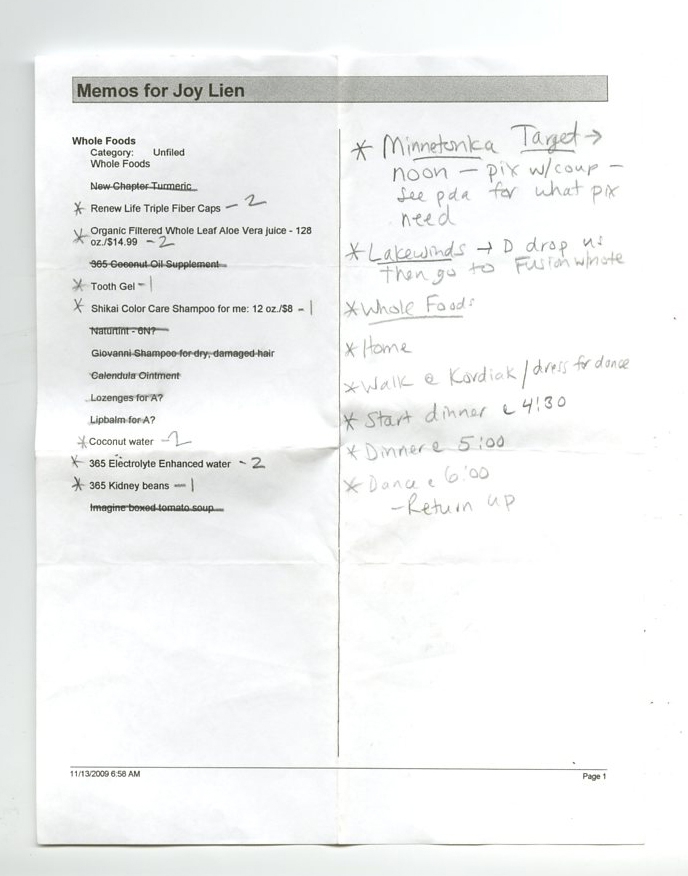 Memos for Joy Lien
Whole Foods
Category: Unfiled
Whole Foods
New Chapter Turmeric
* Renew Life Triple Fiber Caps - 2
* Organic Filtered Whole Leaf Aloe Vera juice - 128
oz./$14.99 - 2
365 Coconut Oil Supplement
* Tooth Gel - 1
* Shikai Color Care Shampoo for me: 12 oz./$8 - 1
Naturtint - 6N?
Giovanni Shampoo for dry, damaged hair
Calendula Ointment
Lozenges for A?
Lipbalm for A?
* Coconut water - 2
* 365 Electrolyte Enhanced water - 2
* 365 Kidney beans - 1
Imagine boxed tomato soup
* Minnetonka Target →
noon - pix w/coup -
see pda for what pix
need
* Lakewinds → D drop us
then go to Fusion w/note
* Whole Foods
* Home
* Walk @ Kordiak / dress for dance
* Start dinner @ 4:30
* Dinner @ 5:00
* Dance @ 6:00
- Return up
11/13/2009 6:58 AM
Page 1